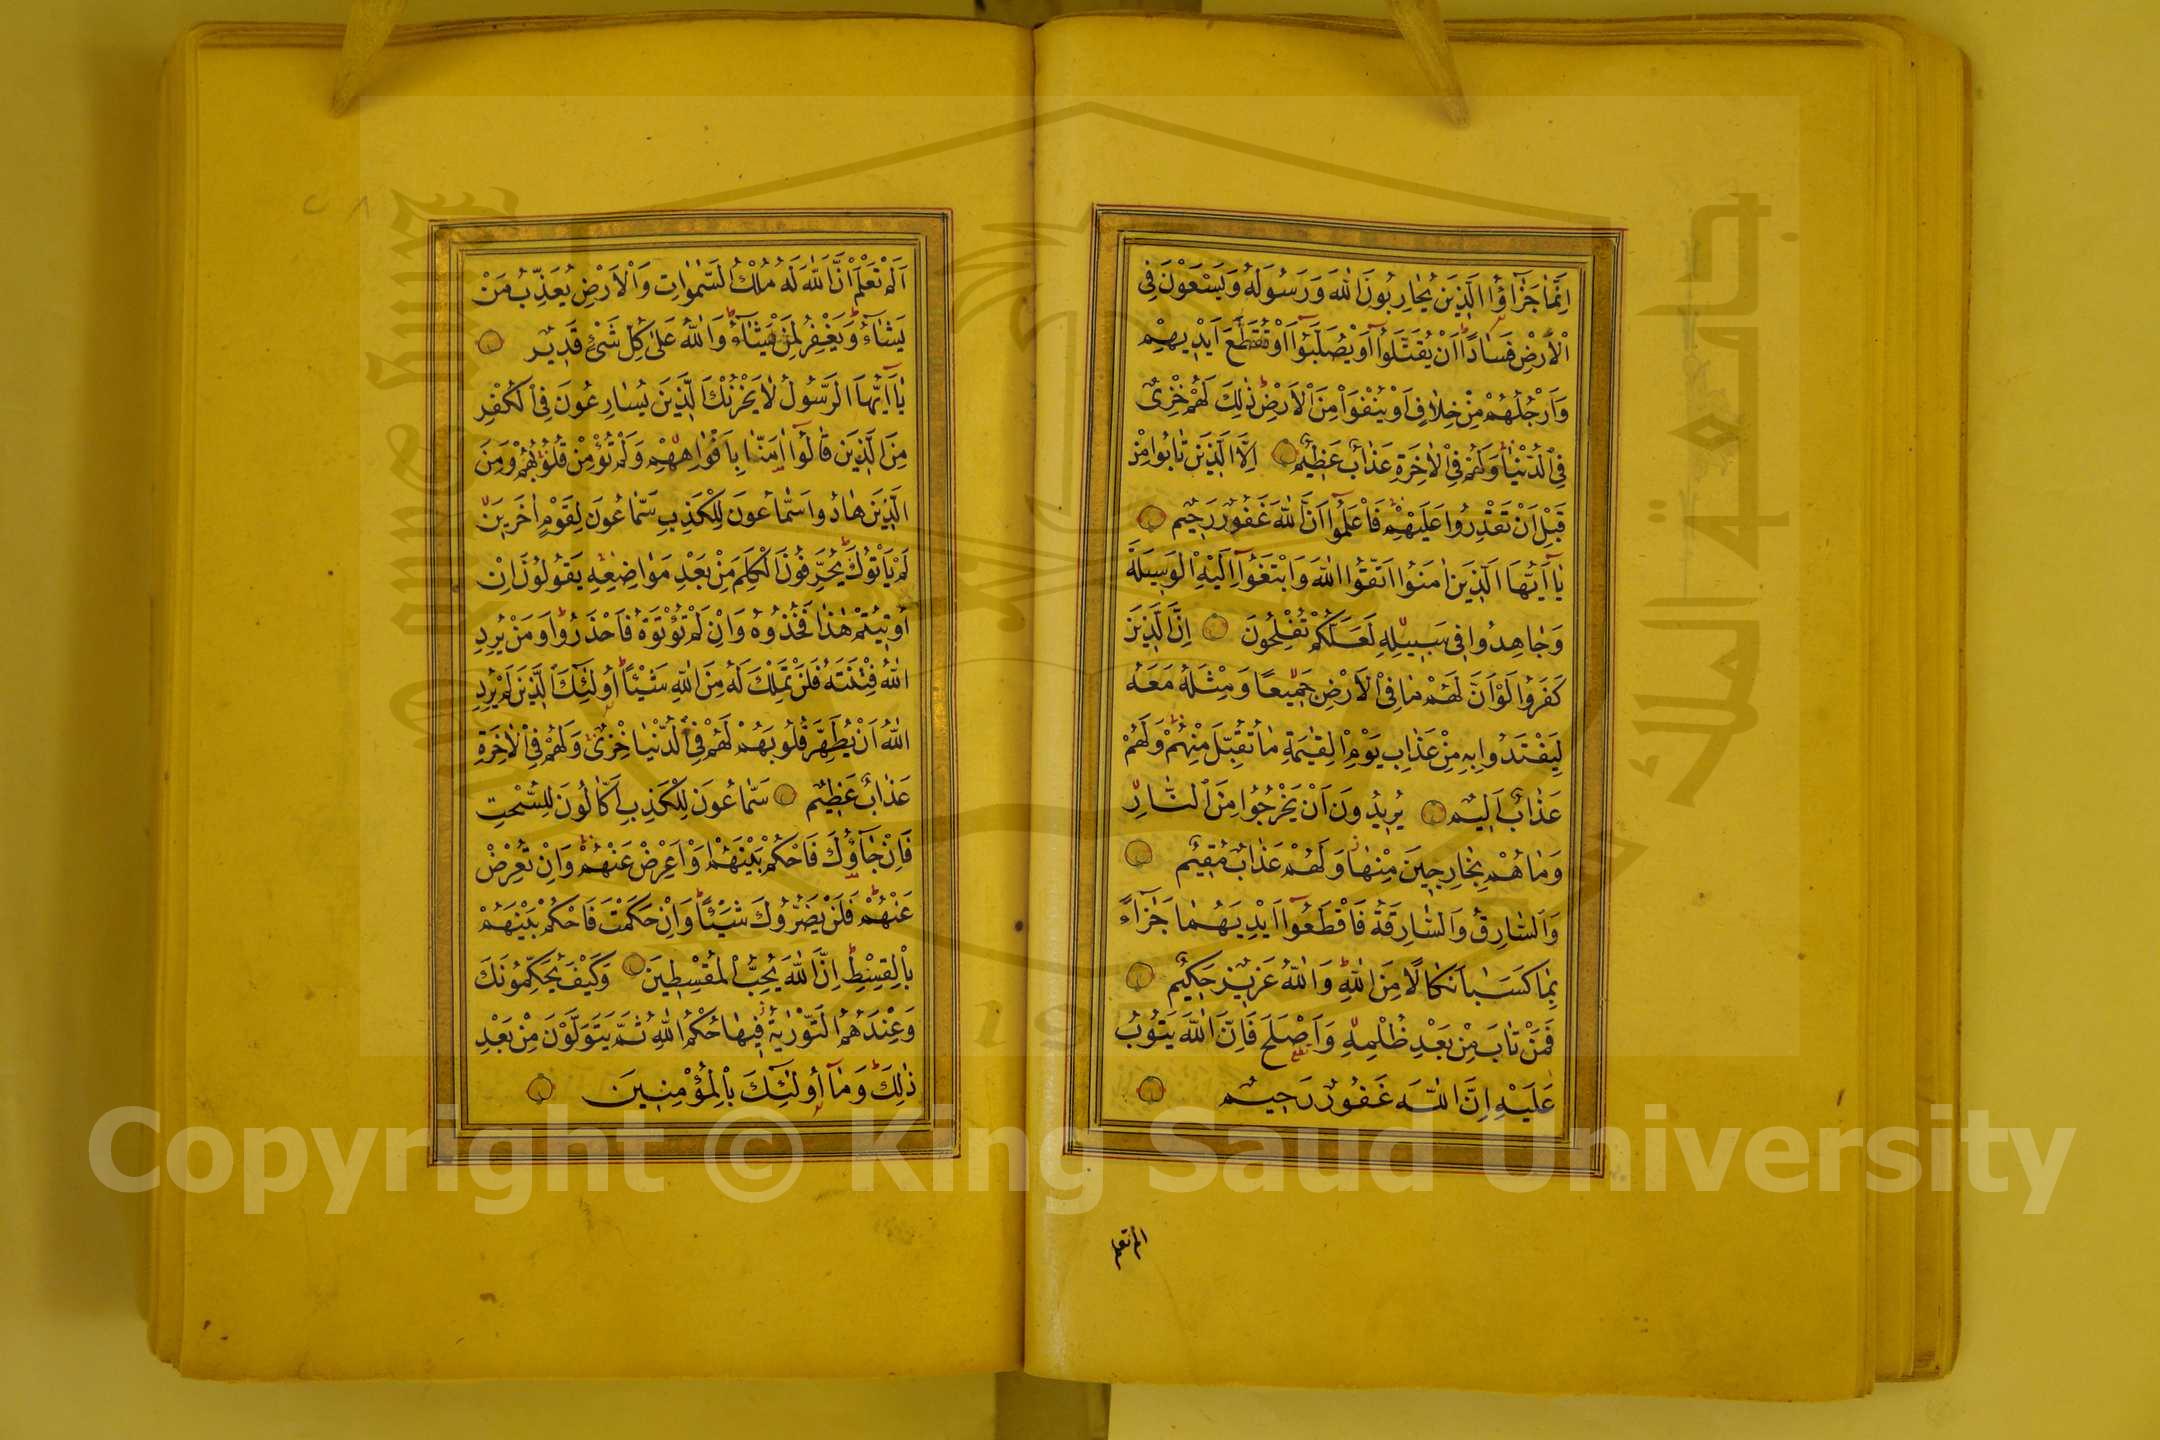 اِنَّمَا جَزٰٓاؤُا الَّذ۪ينَ يُحَارِبُونَ اللّٰهَ وَرَسُولَهُ وَيَسْعَوْنَ فِي
الْاَرْضِ فَسَادًا اَنْ يُقَتَّلُٓوا اَوْ يُصَلَّبُٓوا اَوْ تُقَطَّعَ اَيْد۪يهِمْ
وَاَرْجُلُهُمْ مِنْ خِلَافٍ اَوْ يُنْفَوْا مِنَ الْاَرْضِ ذٰلِكَ لَهُمْ خِزْيٌ
فِي الدُّنْيَا وَلَهُمْ فِي الْاٰخِرَةِ عَذَابٌ عَظ۪يمٌ اِلَّا الَّذ۪ينَ تَابُوا مِنْ
قَبْلِ اَنْ تَقْدِرُوا عَلَيْهِمْ فَاعْلَمُٓوا اَنَّ اللّٰهَ غَفُورٌ رَح۪يمٌ
يَٓا اَيُّهَا الَّذ۪ينَ اٰمَنُوا اتَّقُوا اللّٰهَ وَابْتَغُٓوا اِلَيْهِ الْوَس۪يلَةَ
وَجَاهِدُوا ف۪ي سَب۪يلِه۪ لَعَلَّكُمْ تُفْلِحُونَ اِنَّ الَّذ۪ينَ
كَفَرُوا لَوْ اَنَّ لَهُمْ مَا فِي الْاَرْضِ جَم۪يعًا وَمِثْلَهُ مَعَهُ
لِيَفْتَدُوا بِه۪ مِنْ عَذَابِ يَوْمِ الْقِيٰمَةِ مَا تُقُبِّلَ مِنْهُمْ وَلَهُمْ
عَذَابٌ اَل۪يمٌ يُر۪يدُونَ اَنْ يَخْرُجُوا مِنَ النَّارِ
وَمَا هُمْ بِخَارِج۪ينَ مِنْهَا وَلَهُمْ عَذَابٌ مُق۪يمٌ
وَالسَّارِقُ وَالسَّارِقَةُ فَاقْطَعُٓوا اَيْدِيَهُمَا جَزَٓاءً
بِمَا كَسَبَا نَكَالًا مِنَ اللّٰهِ وَاللّٰهُ عَز۪يزٌ حَك۪يمٌ
فَمَنْ تَابَ مِنْ بَعْدِ ظُلْمِه۪ وَاَصْلَحَ فَاِنَّ اللّٰهَ يَتُوبُ
عَلَيْهِ اِنَّ اللّٰهَ غَفُورٌ رَح۪يمٌ
الم تعلم
اَلَمْ تَعْلَمْ اَنَّ اللّٰهَ لَهُ مُلْكُ السَّمٰوَاتِ وَالْاَرْضِ يُعَذِّبُ مَنْ
يَشَٓاءُ وَيَغْفِرُ لِمَنْ يَشَٓاءُ وَاللّٰهُ عَلٰى كُلِّ شَيْءٍ قَد۪يرٌ
يَٓا اَيُّهَا الرَّسُولُ لَا يَحْزُنْكَ الَّذ۪ينَ يُسَارِعُونَ فِي الْكُفْرِ
مِنَ الَّذ۪ينَ قَالُٓوا اٰمَنَّا بِاَفْوَاهِهِمْ وَلَمْ تُؤْمِنْ قُلُوبُهُمْ وَمِنَ
الَّذ۪ينَ هَادُوا سَمَّاعُونَ لِلْكَذِبِ سَمَّاعُونَ لِقَوْمٍ اٰخَر۪ينَ
لَمْ يَأْتُوكَ يُحَرِّفُونَ الْكَلِمَ مِنْ بَعْدِ مَوَاضِعِه۪ يَقُولُونَ اِنْ
اُو۫ت۪يتُمْ هٰذَا فَخُذُوهُ وَاِنْ لَمْ تُؤْتَوْهُ فَاحْذَرُوا وَمَنْ يُرِدِ
اللّٰهُ فِتْنَتَهُ فَلَنْ تَمْلِكَ لَهُ مِنَ اللّٰهِ شَيْئًا اُو۬لٰٓئِكَ الَّذ۪ينَ لَمْ يُرِدِ
اللّٰهُ اَنْ يُطَهِّرَ قُلُوبَهُمْ لَهُمْ فِي الدُّنْيَا خِزْيٌ وَلَهُمْ فِي الْاٰخِرَةِ
عَذَابٌ عَظ۪يمٌ سَمَّاعُونَ لِلْكَذِبِ اَكَّالُونَ لِلسُّحْتِ
فَاِنْ جَٓاؤُ۫كَ فَاحْكُمْ بَيْنَهُمْ اَوْ اَعْرِضْ عَنْهُمْ وَاِنْ تُعْرِضْ
عَنْهُمْ فَلَنْ يَضُرُّوكَ شَيْئًا وَاِنْ حَكَمْتَ فَاحْكُمْ بَيْنَهُمْ
بِالْقِسْطِ اِنَّ اللّٰهَ يُحِبُّ الْمُقْسِط۪ينَ وَكَيْفَ يُحَكِّمُونَكَ
وَعِنْدَهُمُ التَّوْرٰيةُ ف۪يهَا حُكْمُ اللّٰهِ ثُمَّ يَتَوَلَّوْنَ مِنْ بَعْدِ
ذٰلِكَ وَمَٓا اُو۬لٰٓئِكَ بِالْمُؤْمِن۪ينَ
Copyright © King Saud University